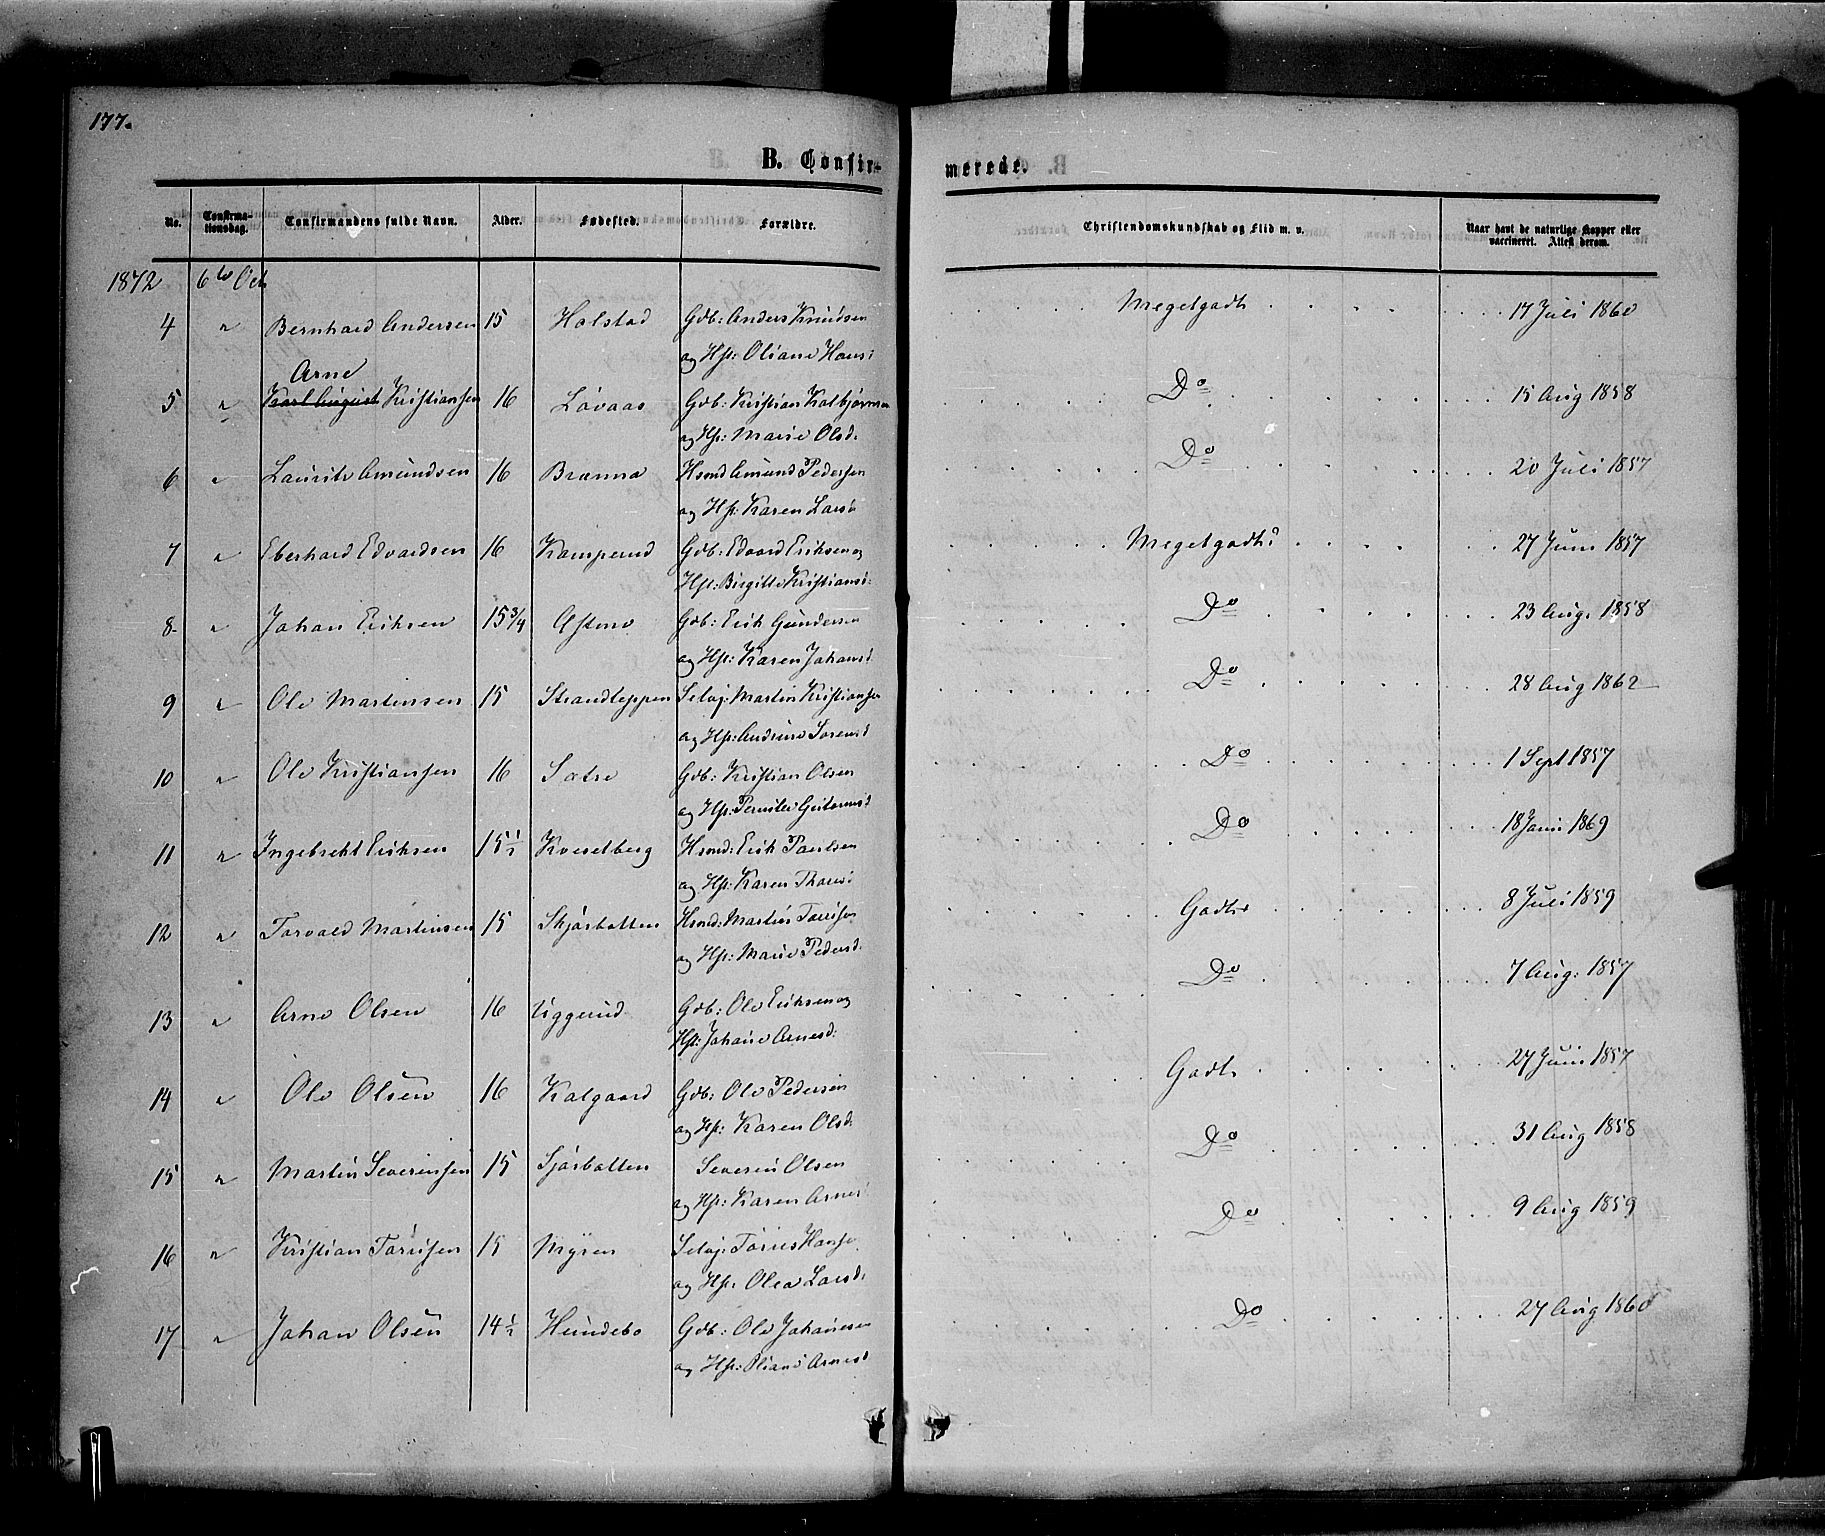 177.
B. Confirmerede.
No. Confirmationsdag. Confirmandens fulde Navn. Alder. Fødested. Forældre. Christendomskundskab og Flid m. v. Naar havt de naturlige Kopper eller vaccineret. Attest derom.
1872 6te Oct
4 " Bernhard Andersen 15 Holstad Gdb: Anders Knudsen Megetgodt 17 Juli 1860
og Hst: Oliane Hans:
Arne
5 " Karl August Kristiansen 16 Lövaas Gdb: Kristian Kolbjørnsen Do 15 Aug 1858
og Hst: Marie Olsd.
6 " Laurits Amundsen 16 Brænna Hsmd Amund Pedersen Do 20 Juli 1857
og Hst: Karen Larsd
7 " Eberhard Edvardsen 16 Kamperud Gdb: Edvard Eriksen og Megetgodt 27 Juni 1857
Hst: Birgitte Kristiansd:
8 " Johan Eriksen 15 3/4 Gdb: Erik Gundersen Do 23 Aug. 1858
og Hst: Karen Johansd
9 " Ole Martinsen 15 Strandteppen Selvj: Martin Kristiansen Do 28 Aug 1862
og Hst: Andrine Sørensd
10 " Ole Kristiansen 16 Sætre Gdb: Kristian Olsen Do 1 Sept 1857
og Hst: Pernille
11 " Ingebrekt Eriksen 15 1/2 Kveselberg Hsmd: Erik Paulsen Do 18 Juni 1869
og Hst: Karen Thoresd
12 " Torvald Martinsen 15 Skjørbatten Hsmd: Martin Torrisen Godt 8 Juli 1859
og Hst: Marie Pedersd.
13 " Arne Olsen 16 Uggerud Gdb: Ole Eriksen og Do 7 Aug: 1857
Hst: Johane Arnesd:
14 " Ole Olsen 16 Kalgaard Gdb: Ole Pedersen Godt 27 Juni 1857
og Hst: Karen Olsd.
15 " Martin Severinsen 15 Sjørbatten Severin Olsen Do 31 Aug 1858
og Hst: Karen Arnesd
16 " Kristian Torrisen 15 Myren Selvj: Torris Hansen Do 9 Aug 1859
og Hst: Olea Larsd:
17 " Johan Olsen 14 1/2 Hundebo Gdb: Ole Johanesen Do 27 Aug 1860
og Hst: Oliane Arnesd